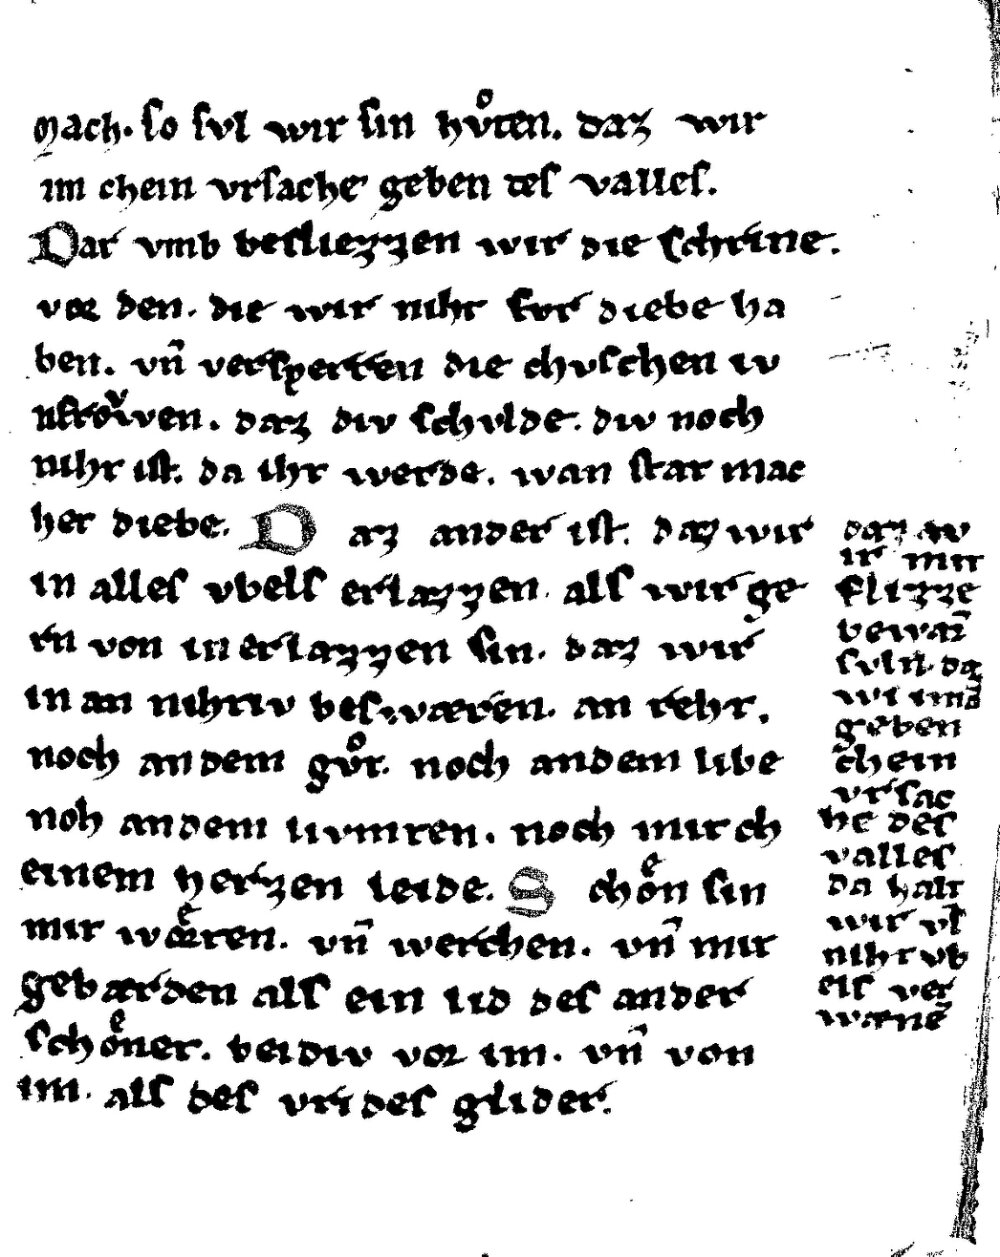 mach. ſo ſvl wir ſin hvͦten. daz wir
im chein vrſache geben des valles.
Dar vmb beſliezzen wir die ſchrine.
vor den. die wir niht fvr diebe ha
ben. vn̄ verſperren die chvſchen iv
nkfroͮwen. daz div ſchvlde. div noch
niht iſt. da iht werde. wan ſtat mac
het diebe. Daz ander iſt. daz wir
in alles vbels erlazzen. als wir ge
rn von in erlazzen ſin. daz wir
in an nihtiv beſwæren. an reht.
noch an dem gvͦt. noch an dem libe
noh an dem livmten. noch mit ch
einem herzen leide. Schoͤn ſin
mit worten. vn̄ werchen. vn̄ mit
gebærden als ein lid des ander
ſchoͤner. beidiv vor im. vn̄ von
im. als des vrides glider.
daz
ir mit
flizze
bewarn̄
ſvln. daz
wi imā
geben
chein
vrſac
he des
valles
da halt
wir vſ
niht vb
els ver
wænē